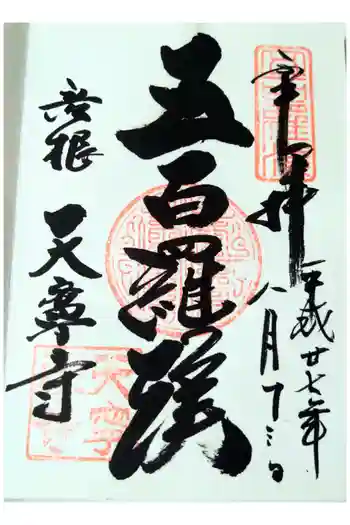 奉拝
平成廿七年
八月十三日
五百羅漢
彦根
天寧寺